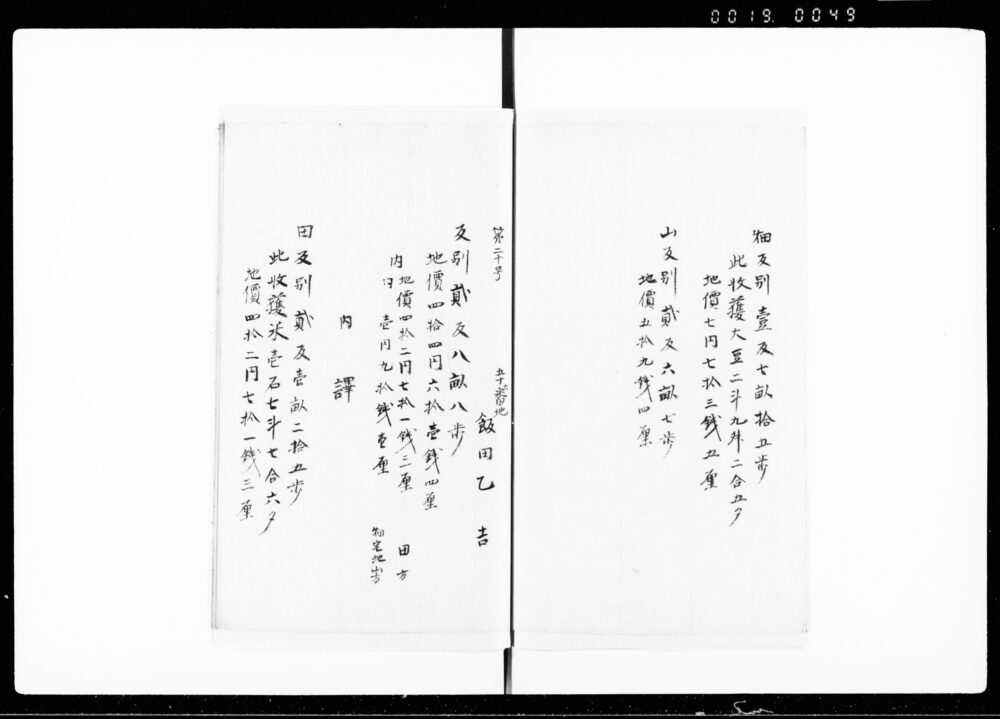 0019.0049
畑反別壹反七畝拾五歩
此收穫大豆二斗九升二合五夕
地價七円七拾三錢五厘
山反別貳反六畝七歩
地價五拾九錢四厘
第二十号
五十番地
飯田乙吉
反別貳反八畝八歩
地價四拾四円六拾壱錢四厘
内地價四拾二円七拾一錢三厘 田方
〃壱円九拾錢壱厘 畑宅地山方
内譯
田反別貳反壱畝二拾五歩
此收穫米壱石七斗七合六夕
地價四拾二円七拾一錢三厘